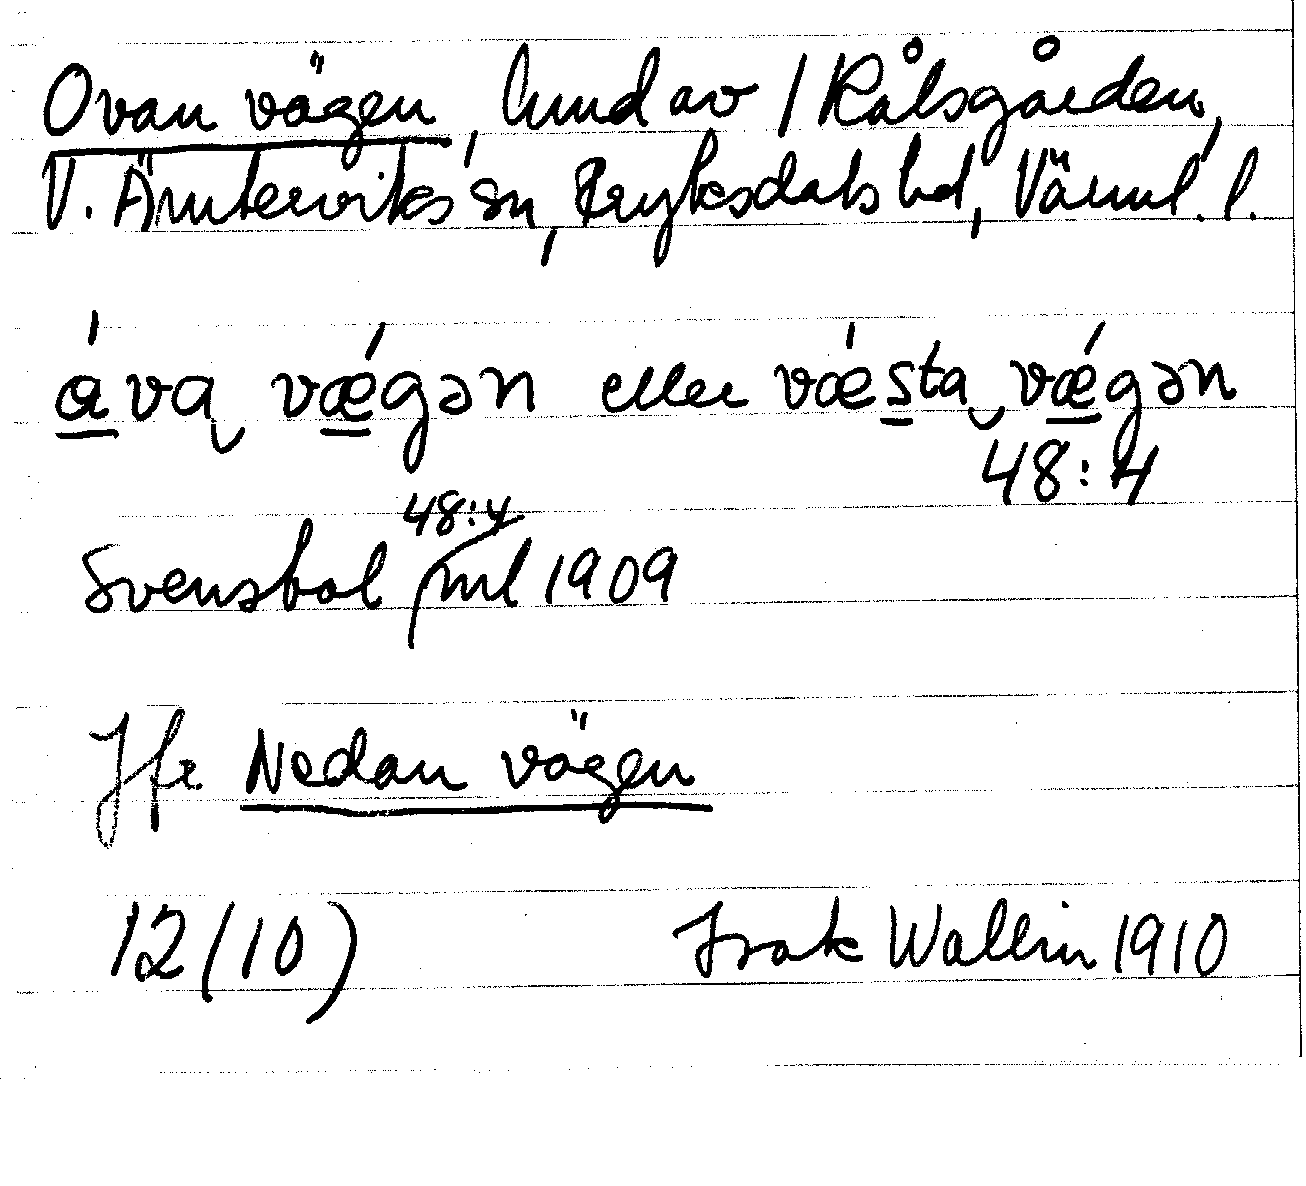 Ovan vägen, hmd av 1 Rålsgården,
V. Ämterviks sn, Fryksdals hd, Värml. l.
á̱vą vǽ̱gən eller væ´s̱ta vǽ̱gən
48:4
48:4
Svensbol / ml 1909
Jfr Nedan vägen
12(10) Isak Wallin 1910